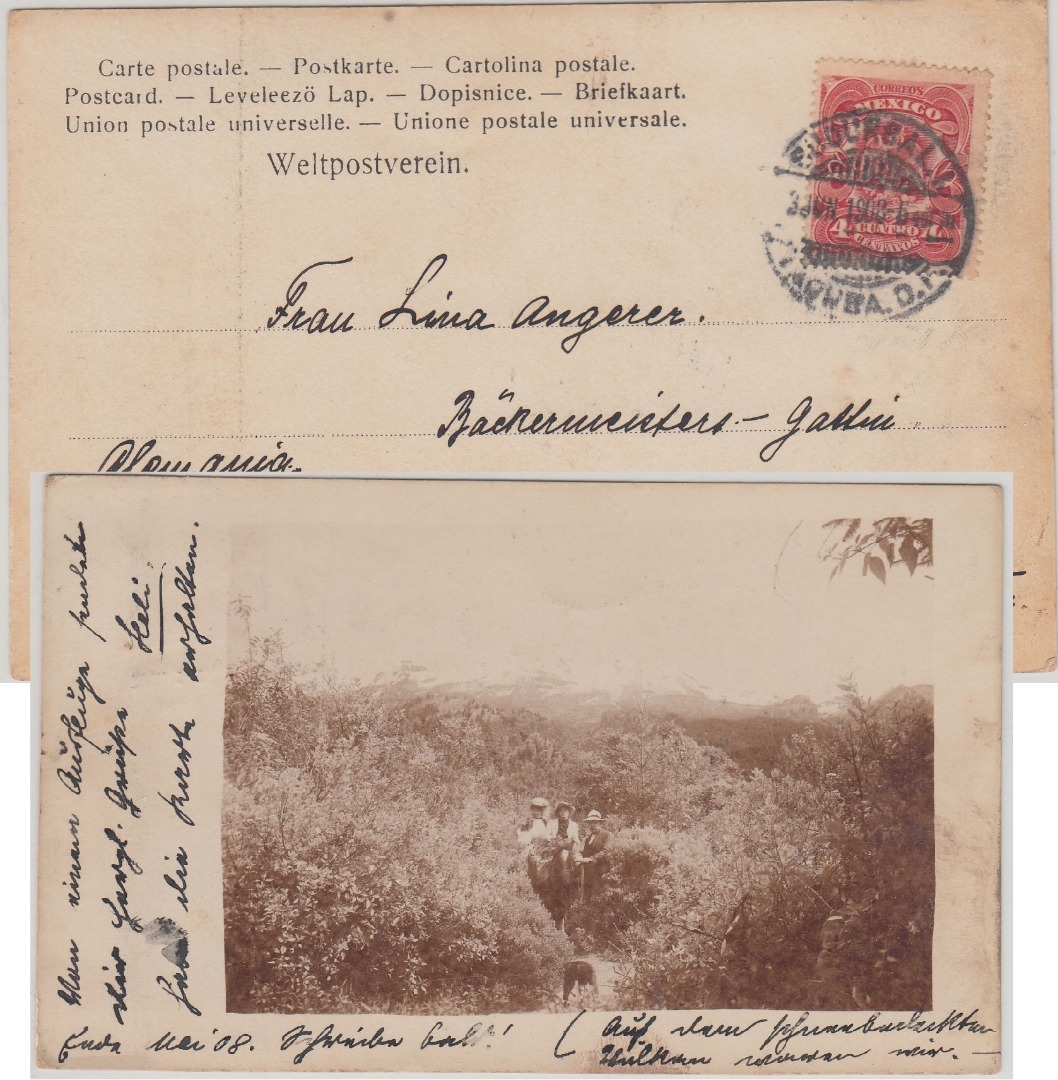 Carte postale. — Postkarte. — Cartolina postale.
Postcard. — Leveleező Lap. — Dopisnice. — Briefkaart.
Union postale universelle. — Unione postale universale.
Weltpostverein.
CORREOS
MEXICO
4 CUATRO 4
CENTAVOS
SUCURSAL
3 JUN 1908
TACUBA. D.F.
Frau Lina Angerer.
Bäckermeisters-Gattin
Alemania.
Von einem Ausfluge sendet
dir herzl. Grüße Heli.
Habe die Karte erhalten.
Ende Mai 08. Schreibe bald!
( Auf dem schneebedeckten
Vulkan waren wir. —